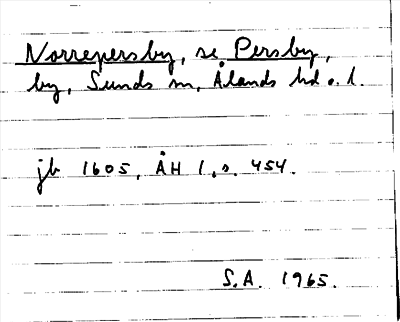 Norrepersby, se Persby,
by, Sunds sn, Ålands hd o. l.
jb 1605, ÅH 1, s. 454.
S.A. 1965.